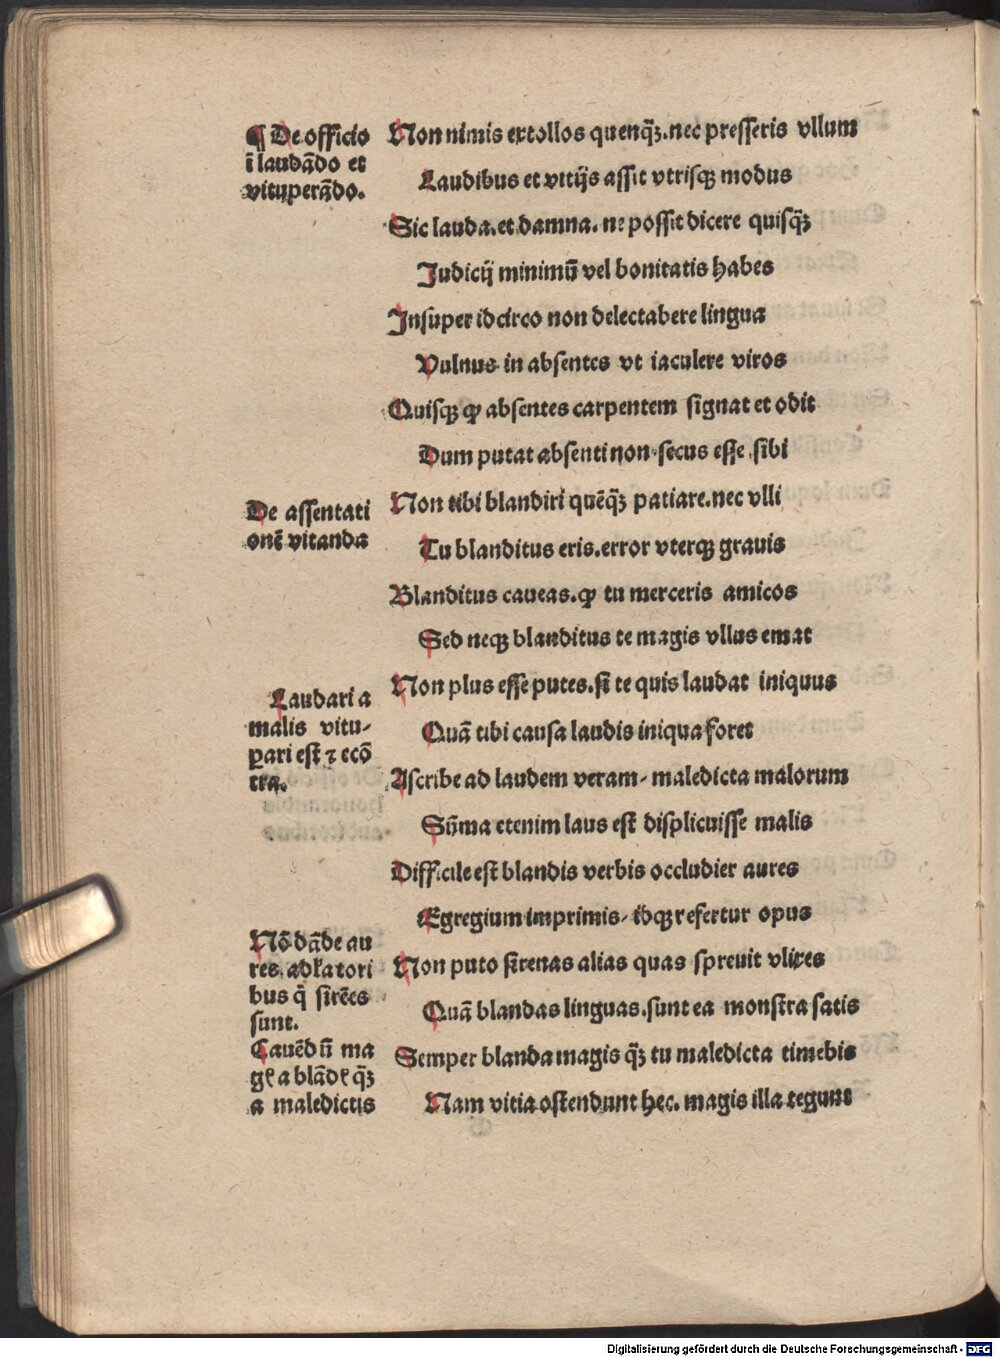 ¶ De officio
ī laudādo et
vituperādo.
Non nimis extollos quenqꝫ. nec presseris vllum
Laudibus et vitijs assit vtrisqꝫ modus
Sic lauda. et damna. ne possit dicere quisqꝫ̄
Judicij minimū vel bonitatis habes
Insuper idcirco non delectabere lingua
Vulnus in absentes vt iaculere viros
Quisqꝫ ꝙ absentes carpentem signat et odit
Dum putat absenti non secus esse sibi
De assentati
onē vitanda
Non tibi blandiri quēqꝫ̄ patiare. nec vlli
Tu blanditus eris. error vterqꝫ grauis
Blanditus caueas. ꝙ tu merceris amicos
Sed neqꝫ blanditus te magis vllus emat
Laudari a
malis vitu-
ꝑari est ⁊ ecō
tra.
Non plus esse putes. si te quis laudat iniquus
Quā tibi causa laudis iniqua foret
Ascribe ad laudem veram- maledicta malorum
Sūma etenim laus est displicuisse malis
Difficile est blandis verbis occludier aures
Egregium imprimis- ibqꝫ refertur opus
Nō dāde au
res. adlatori
bus q̄ sirēes
sunt.
Non puto sirenas alias quas spreuit vlixes
Quā blandas linguas. sunt ea monstra satis
Cauēdū ma
gꝭ a blādꝭ qꝫ̄
a maledictis
Semper blanda magis qꝫ̄ tu maledicta timebis
Nam vitia ostendunt hec. magis illa tegunt
Digitalisierung gefördert durch die Deutsche Forschungsgemeinschaft - DFG